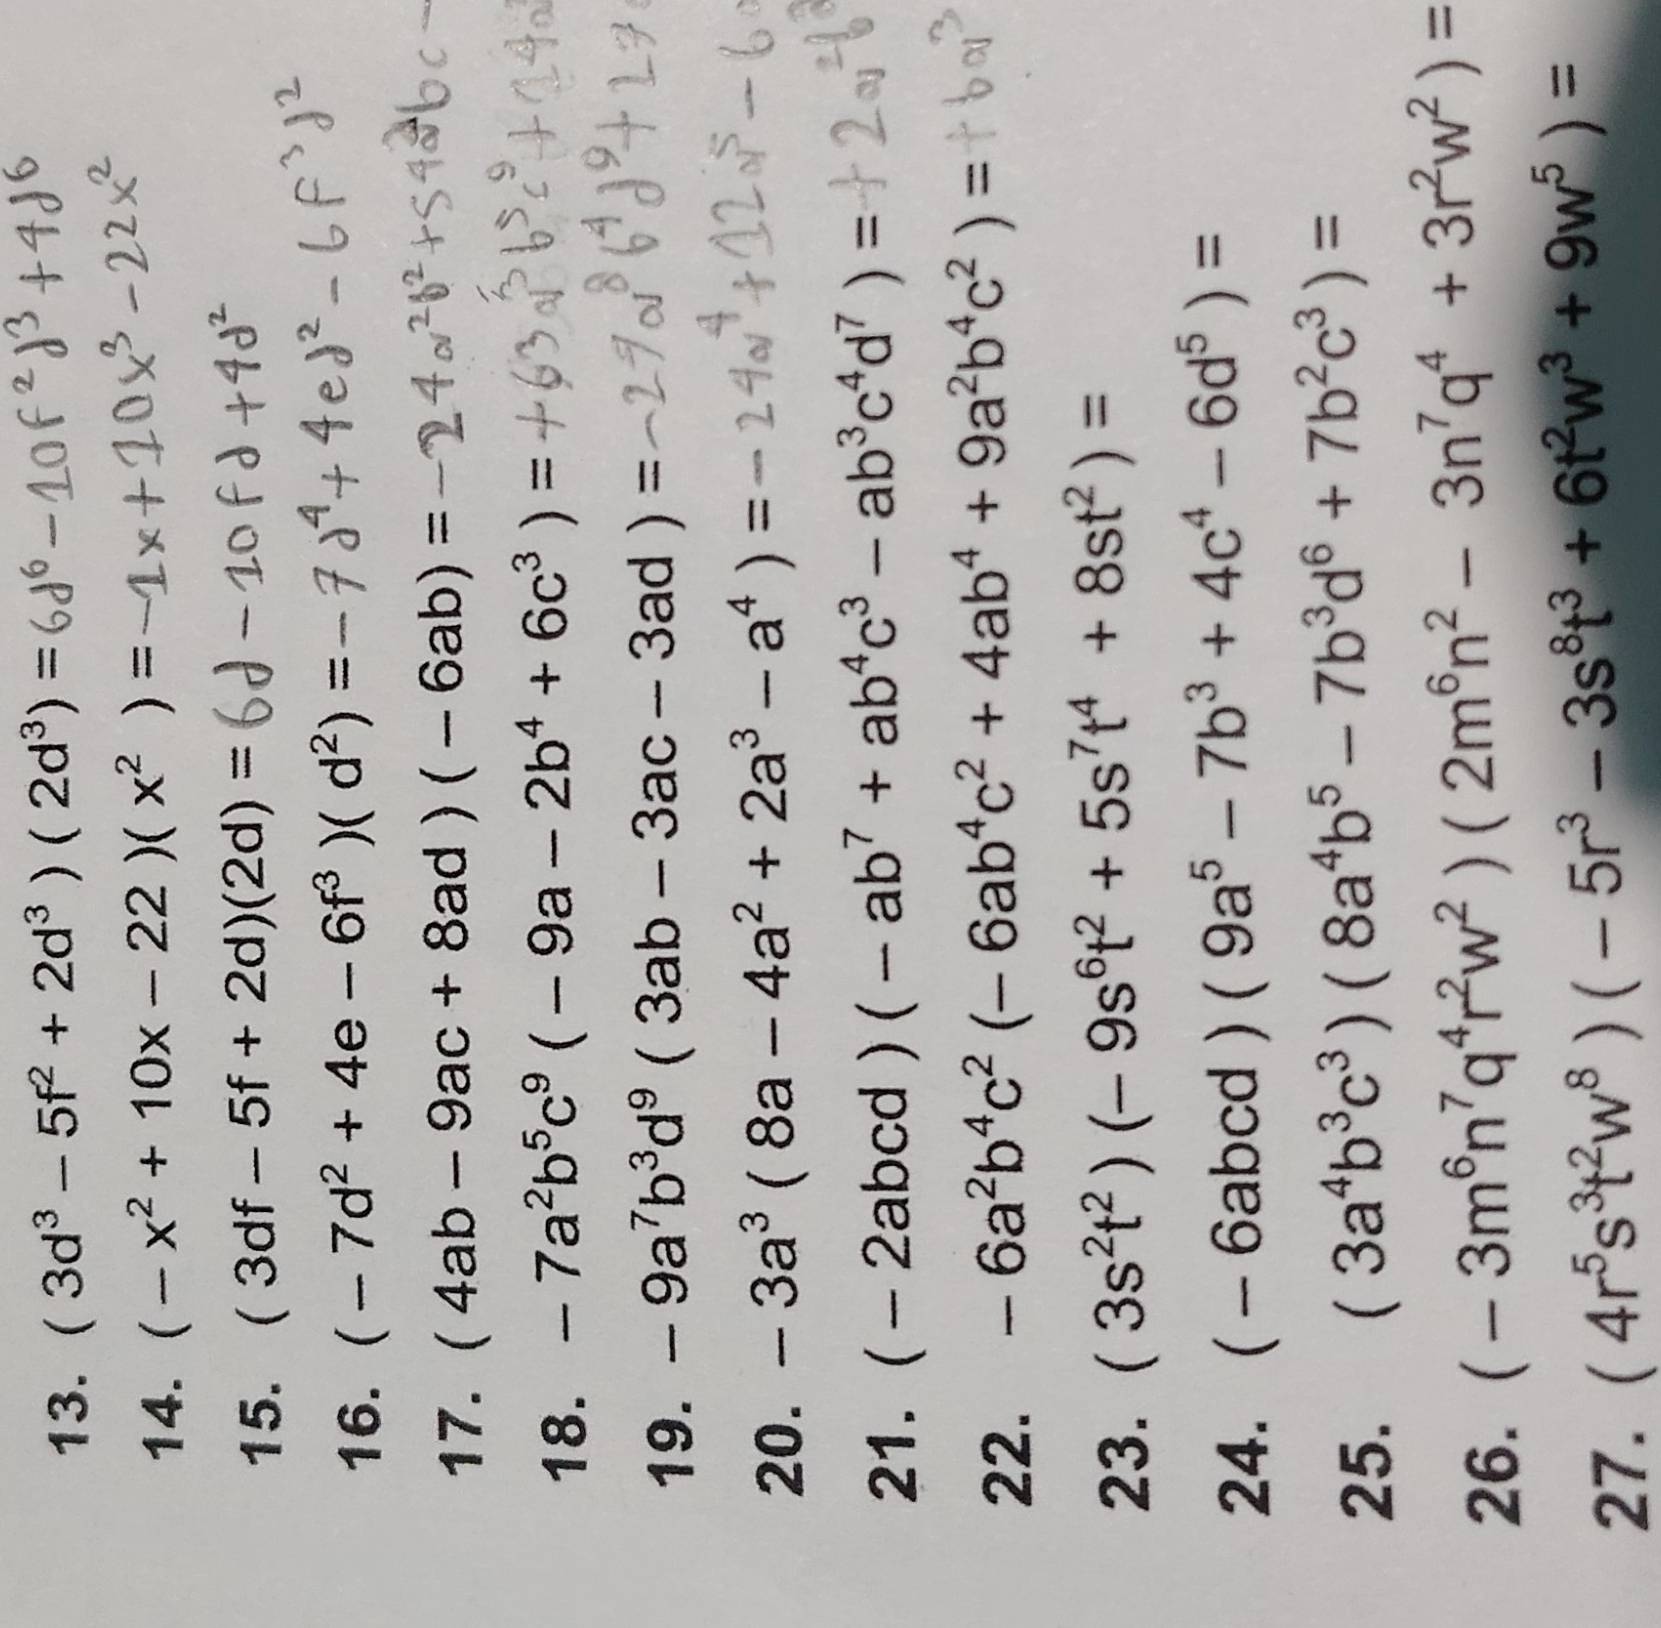 13. ( 3d³ – 5f² + 2d³ ) ( 2d³) = 6d⁶ – 10f²d³ + 4d⁶
14. ( – x² + 10x – 22 )( x² ) = –1x + 10x³ – 22x²
15. ( 3df – 5f + 2d)(2d) = 6d – 10fd + 4d²
16. ( – 7d² + 4e – 6f³ )( d²) = –7d⁴ + 4ed² – 6f³d²
17. ( 4ab – 9ac + 8ad ) ( – 6ab) = –24a²b² + 54a²bc –
18. – 7a²b⁵c⁹ ( – 9a – 2b⁴ + 6c³ ) = +63a³b⁵c⁹ + 14a²
19. – 9a⁷b³d⁹ ( 3ab – 3ac – 3ad ) = –27a⁸b⁴d⁹ + 27
20. – 3a³ ( 8a – 4a² + 2a³ – a⁴ ) = –24a⁴ + 12a⁵ – 6
21. ( – 2abcd ) ( – ab⁷ + ab⁴c³ – ab³c⁴d⁷ ) = +2a²b⁸
22. – 6a²b⁴c² (– 6ab⁴c² + 4ab⁴ + 9a²b⁴c² ) = +6a³
23. ( 3s²t² ) (– 9s⁶t² + 5s⁷t⁴ + 8st² ) =
24. ( – 6abcd ) ( 9a⁵ – 7b³ + 4c⁴ – 6d⁵ ) =
25. ( 3a⁴b³c³ ) ( 8a⁴b⁵ – 7b³d⁶ + 7b²c³ ) =
26. ( – 3m⁶n⁷q⁴r²w² ) ( 2m⁶n² – 3n⁷q⁴ + 3r²w² ) =
27. ( 4r⁵s³t²w⁸ ) ( – 5r³ – 3s⁸t³ + 6t²w³ + 9w⁵ ) =